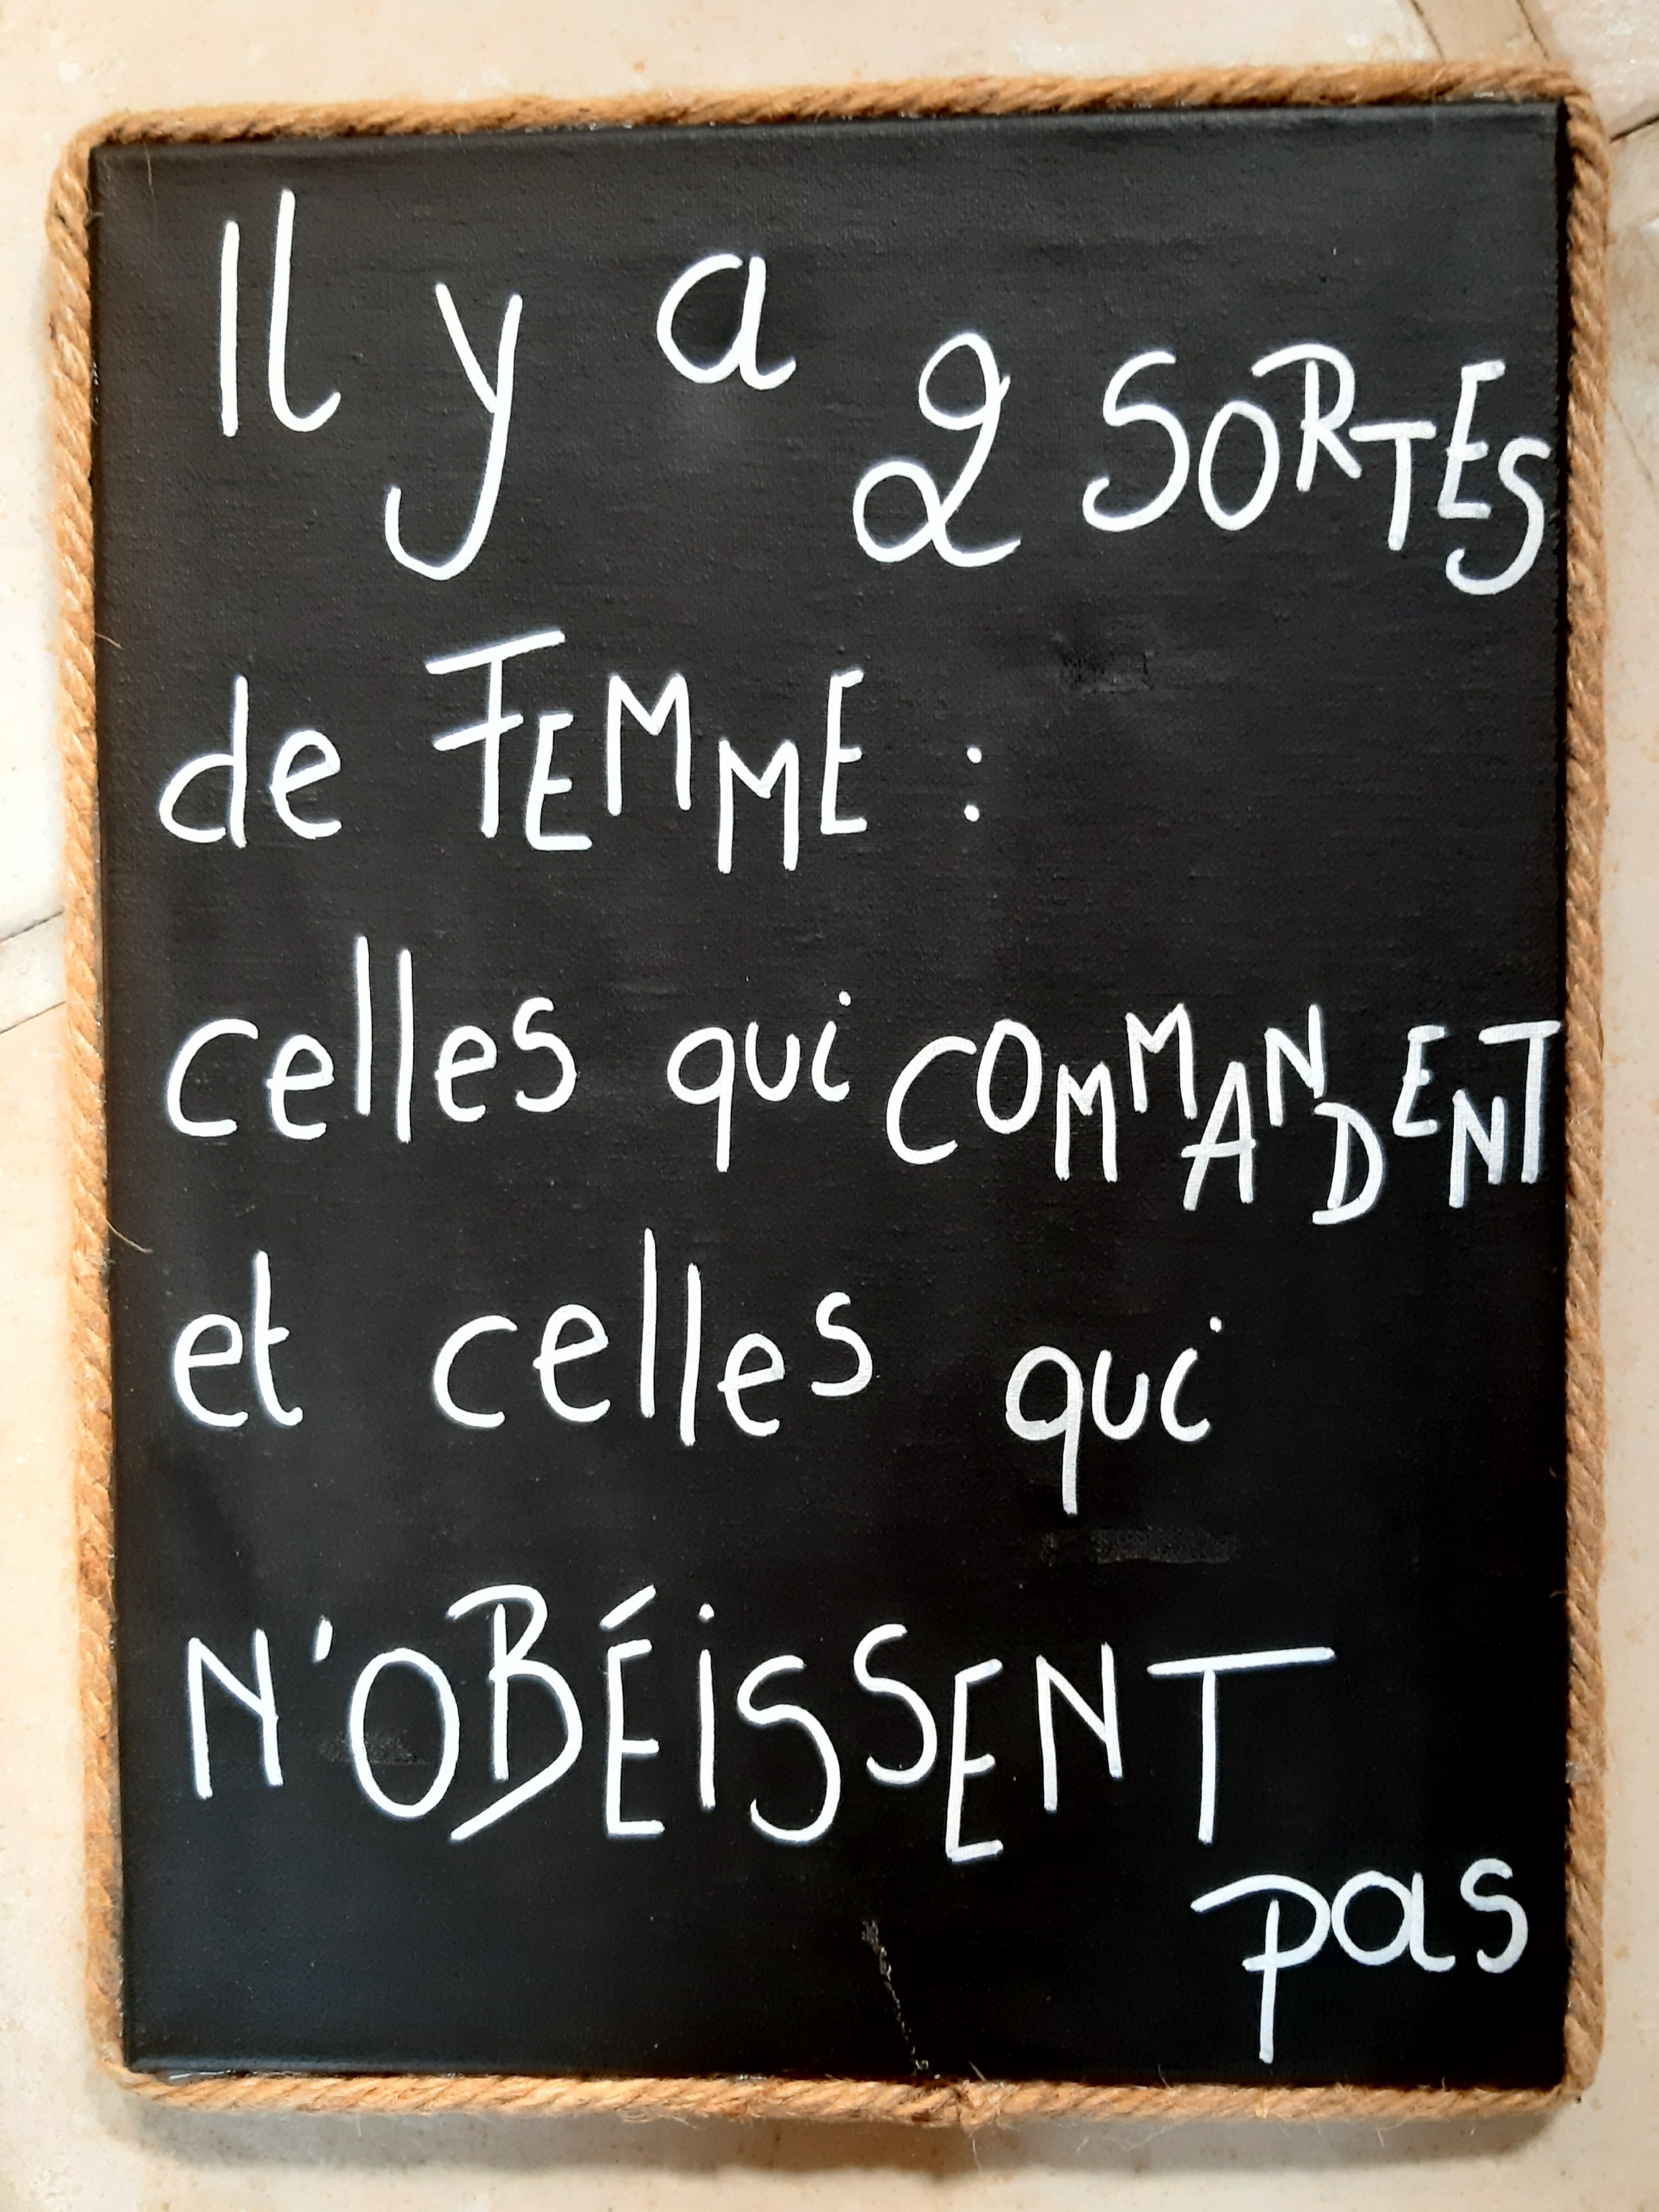 Il y a 2 SORTES
de FEMME :
celles qui COMMANDENT
et celles qui
N'OBÉiSSENT
pas